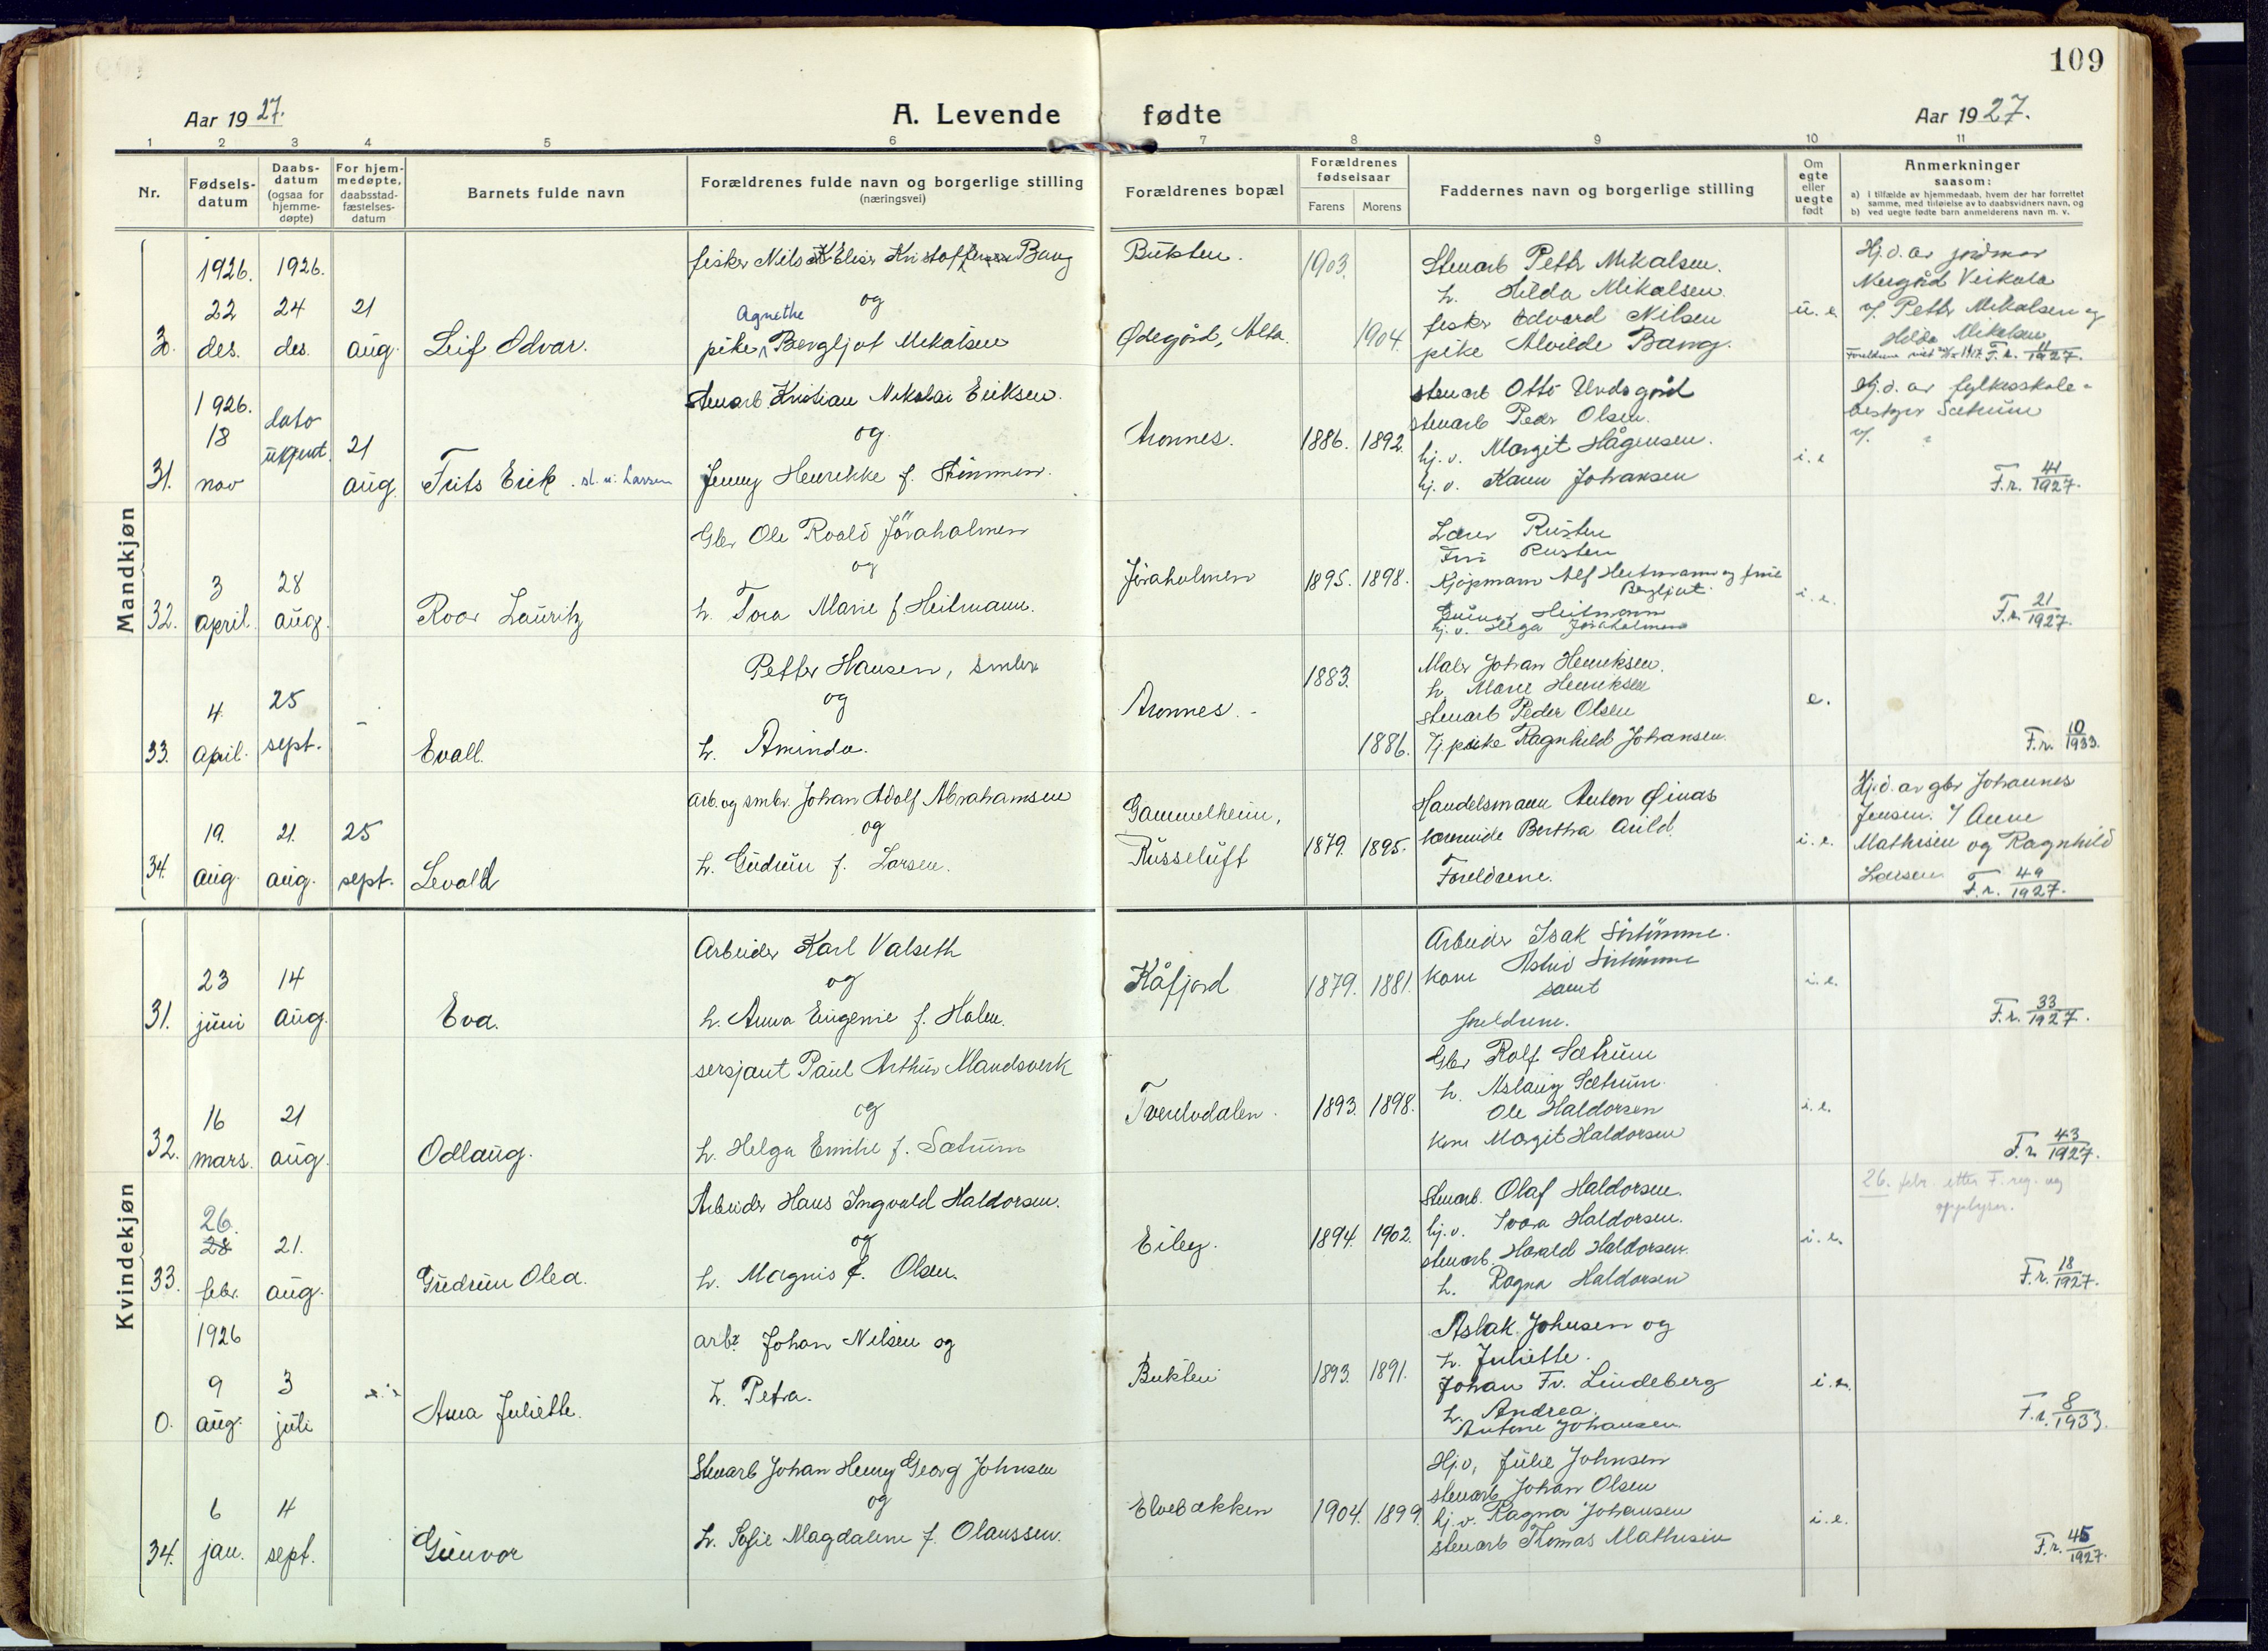 109
Aar 1927.
A. Levende fødte
Aar 1927.
1 2 3 4 5 6 7 8 9 10 11
Nr.
Fødsels-
datum
Daabs-
datum
(ogsaa for
hjemme-
døpte)
For hjem-
medøpte,
daabsstad-
fæstelses-
datum
Barnets fulde navn
Forældrenes fulde navn og borgerlige stilling
(næringsvei)
Forældrenes bopæl
Forældrenes
fødselsaar
Farens Morens
Faddernes navn og borgerlige stilling
Om
egte
eller
uegte
født
Anmerkninger
saasom:
a) i tilfælde av hjemmedaab, hvem der har forrettet
samme, med tilføielse av to daabsvidners navn, og
b) ved uegte fødte barn anmelderens navn m. v.
Mandkjøn
30.
1926.
22
des.
1926.
24
des.
21
aug.
Leif Odvar.
fisker Nils Elier Kristoffersen Bang
og
Agnethe
pike Bergljot Mikalsen
Bukten.
Ødegård, Alta.
1903.
1904.
Stenarb Petter Mikalsen.
h. Hilda Mikalsen.
fisker Edvard Nilsen
pike Alvilde Bang.
u. e.
Hj. d. av jordmor
Nergård Veikola
v/. Petter Mikalsen og
Hilda Mikalsen
F. r. 11/1927.
31.
1926.
18
nov
dato
ukjent.
21
aug.
Frits Erik. sl. n. Larsen
Stenarb. Kristian Nikolai Eriksen.
og
Jenny Henrikke f. Strømmen.
Aronnes.
1886. 1892.
stenarb Otto Undsgård
stenarb Peder Olsen.
hj. v. Margit Hågensen.
hj. v. Karen Johansen
i. e
Hj. d. av fylkesskole-
bestyrer Sætrum
v/. "
F. r. 41/1927.
32.
3
april.
28
aug.
Roar Lauritz
Gbr Ole Roald Jøraholmen
og
h. Tora Marie f. Heitmann.
Jøraholmen
1895. 1898.
Lærer Rusten
Fru Rusten
Kjøpmann Alf Heitmann og frue
Bergljot.
Gunnar Heitmann
hj. v. Helga Jøraholmen
i. e.
F. r. 21/1927.
33.
4
april.
25
sept.
-
Evall.
Petter Hansen, smbr
og
h. Aminda.
Aronnes. -
1883.
1886.
Maler Johan Henriksen.
h. Marie Henriksen
stenarb Peder Olsen
Tj. pike Ragnhild Johansen.
e.
F. r. 10/1933.
34.
19.
aug.
21.
aug.
25
sept.
Levald
arb. og smbr. Johan Adolf Abrahamsen
og
h. Gudrun f. Larsen.
Gammelheim,
Russeluft
1879. 1895.
Handelsmann Anton Øinas
lærerinde Bertha Arild
Foreldrene.
i. e.
Hj. d. av gbr Johannes
Jensen. v/ Anne
Mathisen og Ragnhild
Larsen F. r. 49/1927.
Kvindekjøn
31.
23
juni
14
aug.
Eva.
Arbeider Karl Valseth
og
h. Anna Eugenie f. Holm.
Kåfjord
1879. 1881.
Arbeider Isak
kone Astrid
samt
foreldrene.
i. e.
F. r. 33/1927.
32.
16
mars.
21
aug.
Odlaug.
sersjant Paul Arthur Mandsverk
og
h. Helga Emilie f. Sætrum
Tverelvdalen.
1893. 1898.
Gbr Rolf Sætrum
h. Aslaug Sætrum.
Ole Haldorsen
kone Margit Haldorsen
i. e.
F. r. 43/1927.
33.
26.
28
febr.
21.
aug.
Gudrun Olea.
Arbeider Hans Ingvald Haldorsen.
og
h. Magnis f. Olsen.
Eiby.
1894. 1902.
Stenarb. Olaf Haldorsen.
hj. v. Svara Haldorsen.
stenarb. Harald Haldorsen.
h. Ragna Haldorsen
i. e.
26. febr. etter F. reg. og
opplyser.
F. r. 18/1927.
0.
1926
9
aug.
3
juli
Anna Juliette.
arbr. Johan Nilsen og
h. Petra.
Bukten
1893. 1891.
Aslak Johnsen og
h. Juliette.
Johan Fr. Lindeberg
h. Andrea.
Antone Johansen.
i. e.
F. r. 8/1933.
34.
6
jan.
4
sept.
Gunvor
Stenarb Johan Henry Georg Johnsen
og
h. Sofie Magdalene f. Olaussen.
Elvebakken
1904. 1899.
Hj. v. Julie Johnsen
stenarb Johan Olsen
hj. v. Ragna Johansen
stenarb Thomas Mathisen
i. e.
F. r. 45/1927.